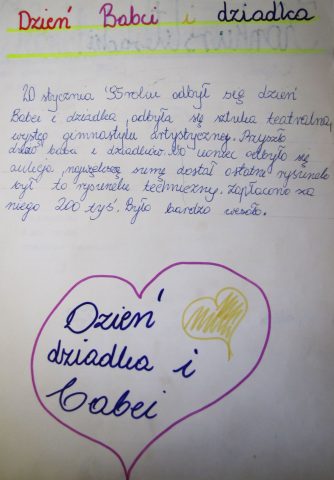 Dzień Babci i dziadka
20 stycznia '95 roku odbył się dzień
Babci i dziadka, odbyła się sztuka teatralna,
występ gimnastyki artystycznej. Przyszło
dużo babci i dziadków. Po koniec odbyło się
aukcja, największą sumę dostał ostatni rysunek
był to rysunek techniczny. Zapłacono za
niego 200 tyś. Było bardzo wesoło.
Dzień
dziadka i
babci